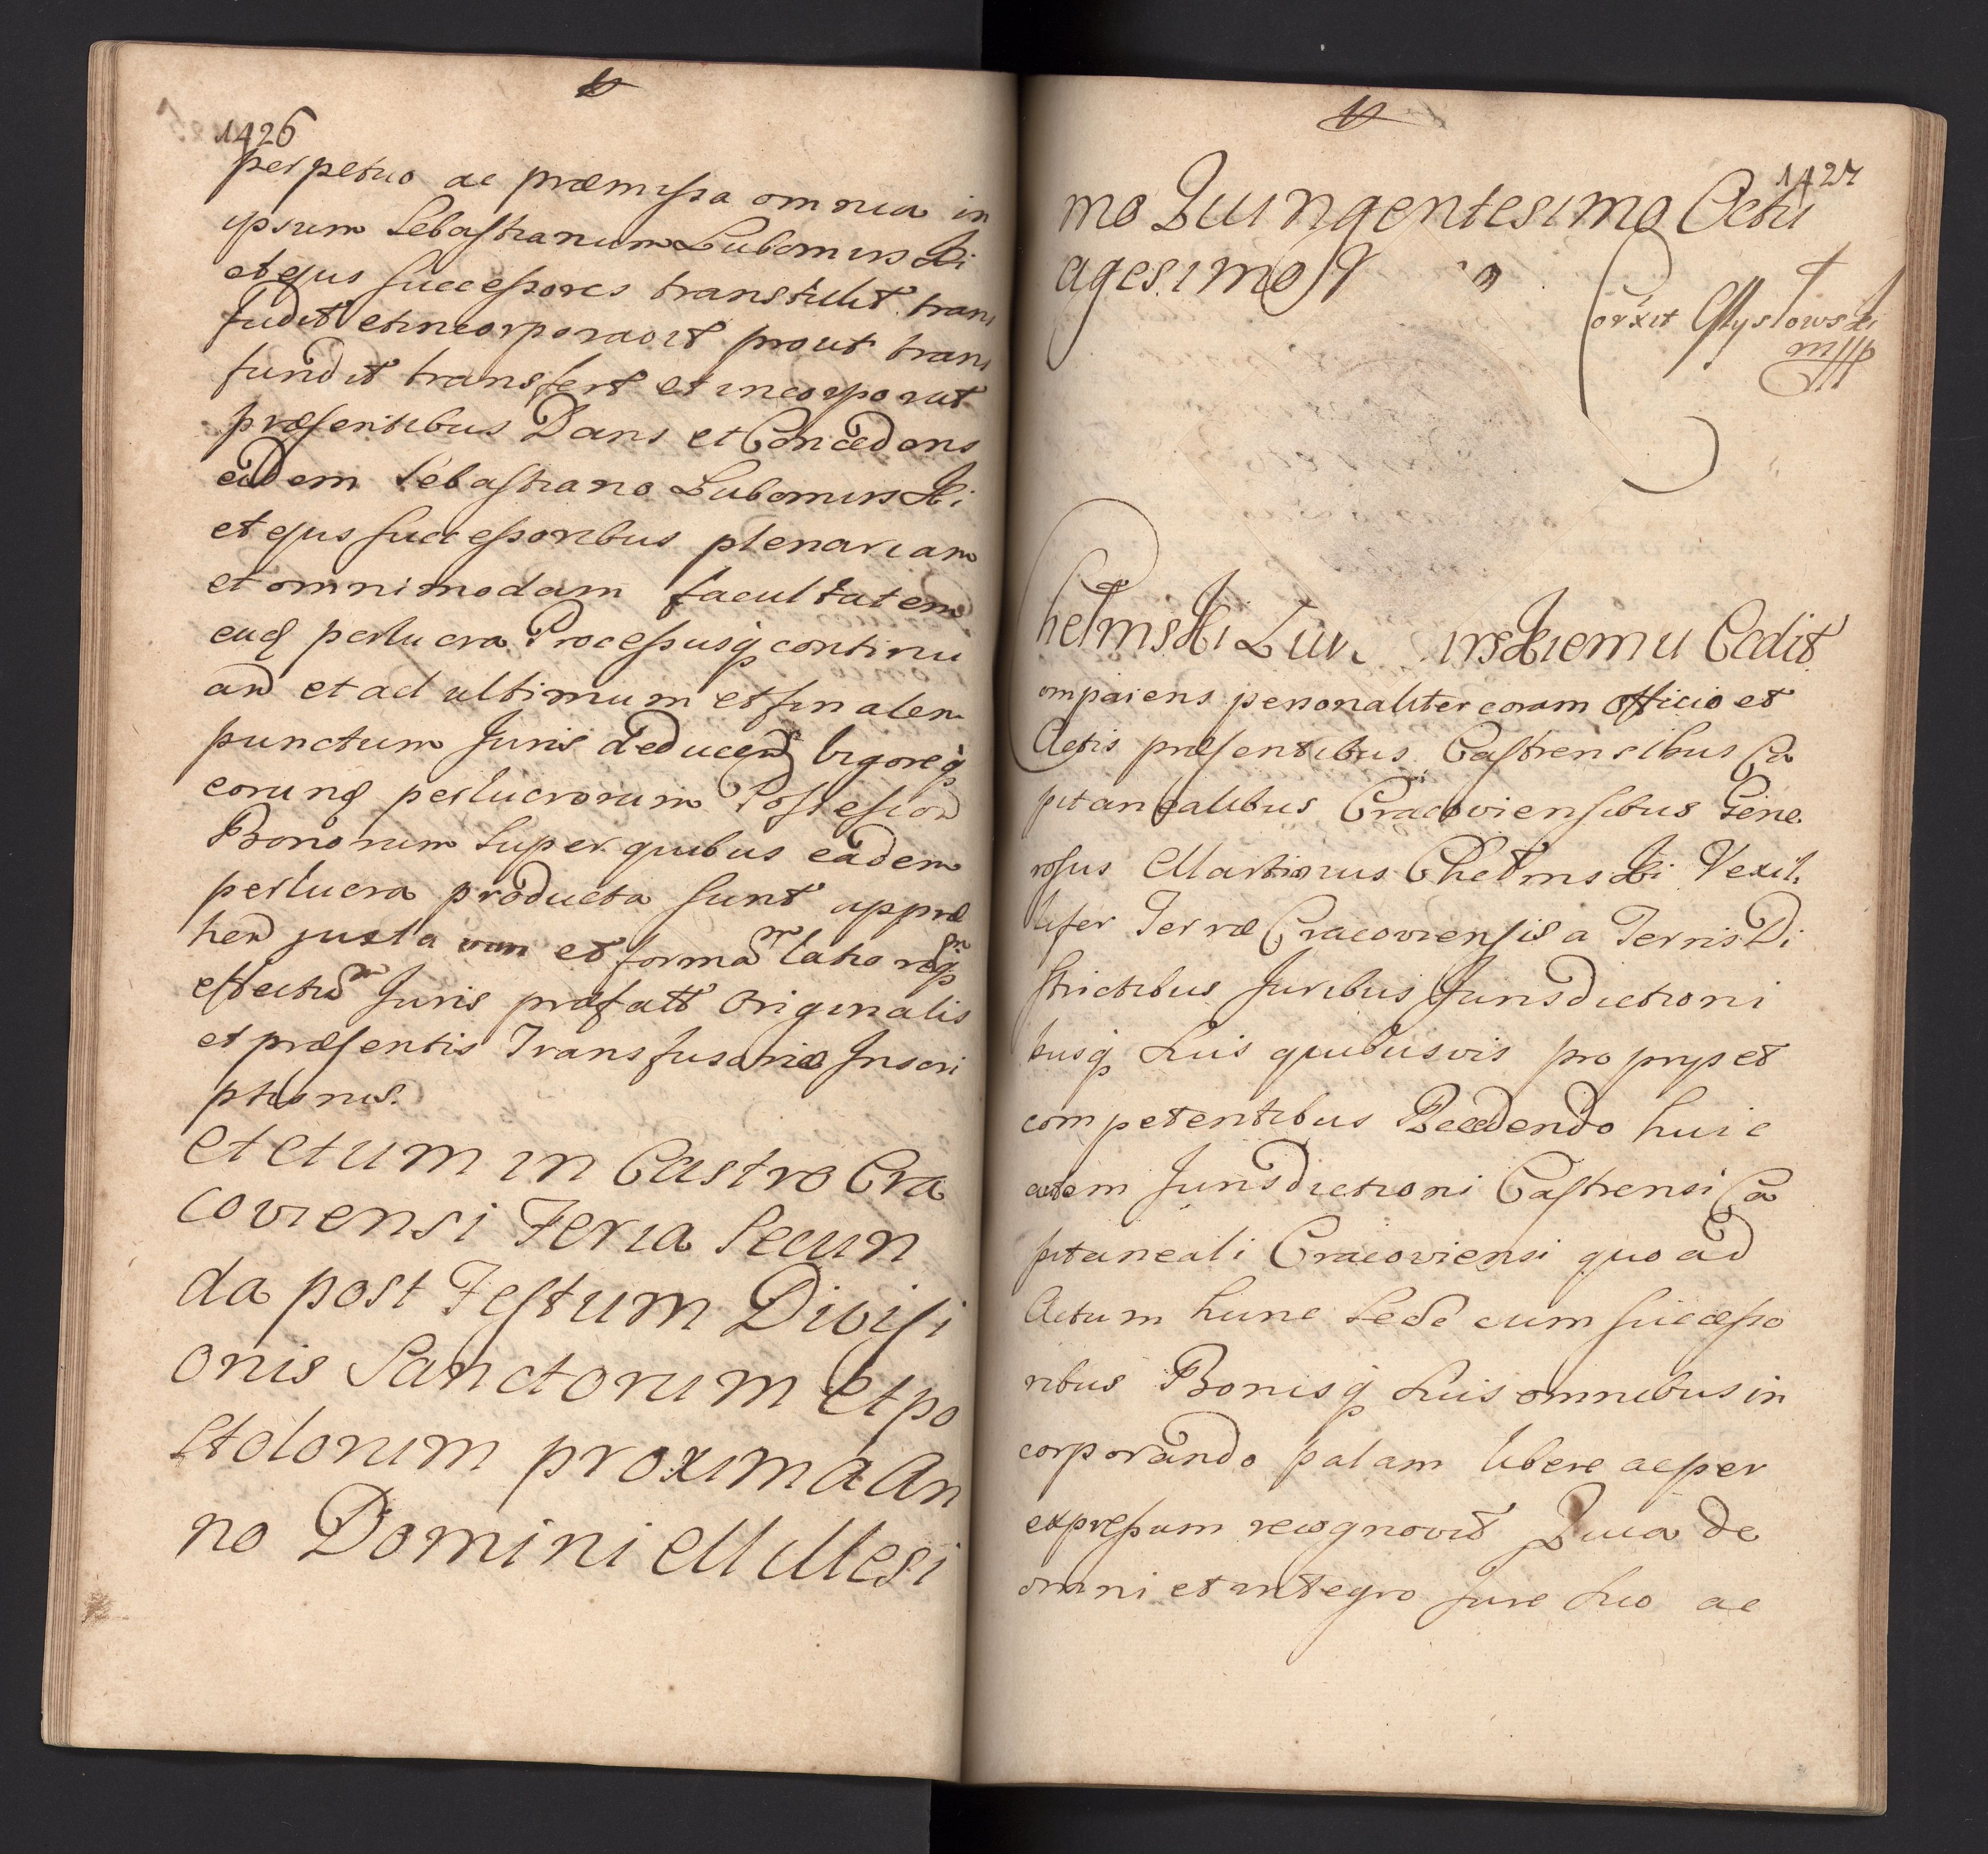 1426
perpetuo ac præmissa omnia in
ipsum Sebastianum Lubomirski
et ejus successores transtulit trans
fudit et incorporavit prout trans
fundit transfert et incorporat
præsentibus Dans et Concedens
eidem Sebastiano Lubomirski
et ejus successoribus plenariam
et omnimodam facultatem
eadꝫ perlucra Processusqꝫ continu
and et ad ultimum et finalem
punctum Juris deducend vigoreqꝫ
eorundꝫ perlucrorum Possession
Bonorum super quibus eadem
perlucra producta sunt appræ
hend juxta vim et formaᵐ latioreqꝫ
effectuᵐ Juris præfatt Originalis
et præsentis Transfusoriæ Inscri
ptionis.
Actum in Castro Cra
coviensi Feria Secun
da post Festum Divisi
onis Sanctorum Apo
stolorum proxima An
no Domini Millesi
1427
mo Quingentesimo Octu
agesimo
Corxit Mystowski
mpp
Chełmski Lu irskiemu Cedit
omparens personaliter coram Officio et
Actis præsentibus Castrensibus Ca
pitanealibus Cracoviensibus Gene
rosus Martinus Chełmski Vexil
lifer Terræ Cracoviensis a Terris Di
strictibus Juribus Jurisdictioni
busqꝫ Suis quibusvis proprys et
competentibus Recedendo huic
autem Jurisdictioni Castrensi Ca
pitaneali Cracoviensi quo ad
Actum hunc Sede cum successo
ribus Bonisqꝫ Suis omnibus in
corporando palam libere ac per
expressum recognovit Quia de
omni et integro Jure Suo ac